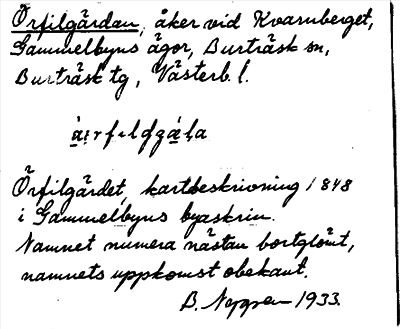 Örfilgärdan, åker vid Kvarnberget,
Gammelbyns ägor, Burträsk sn,
Burträsk tg, Västerb. l.
Örfilgärdet, kartbeskrivning 1848
i Gammelbyns byaskrin.
Namnet numera nästan bortglömt,
namnets uppkomst obekant.
B. 1933.